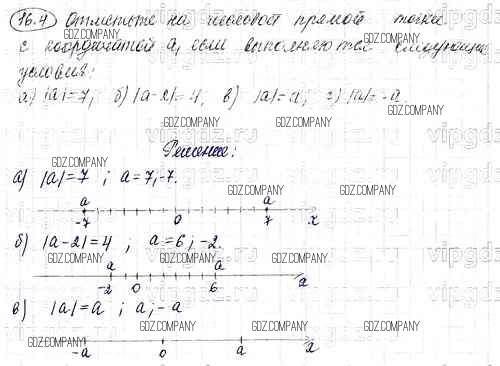 76.4 Отметьте на числовой прямой точки
с координатой a, если выполняются следующие
условия:
а) |a|=7, б) |a-2|=4, в) |a|=a; г) |a|=-a.
Решение:
а) |a|=7 ; a=7;-7.
a a
-7 0 7 x
б) |a-2|=4 ; a=6;-2.
a a
-2 0 6 x
в) |a|=a ; a;-a
-a 0 a x
GDZ.COMPANY
vipgdz.ru